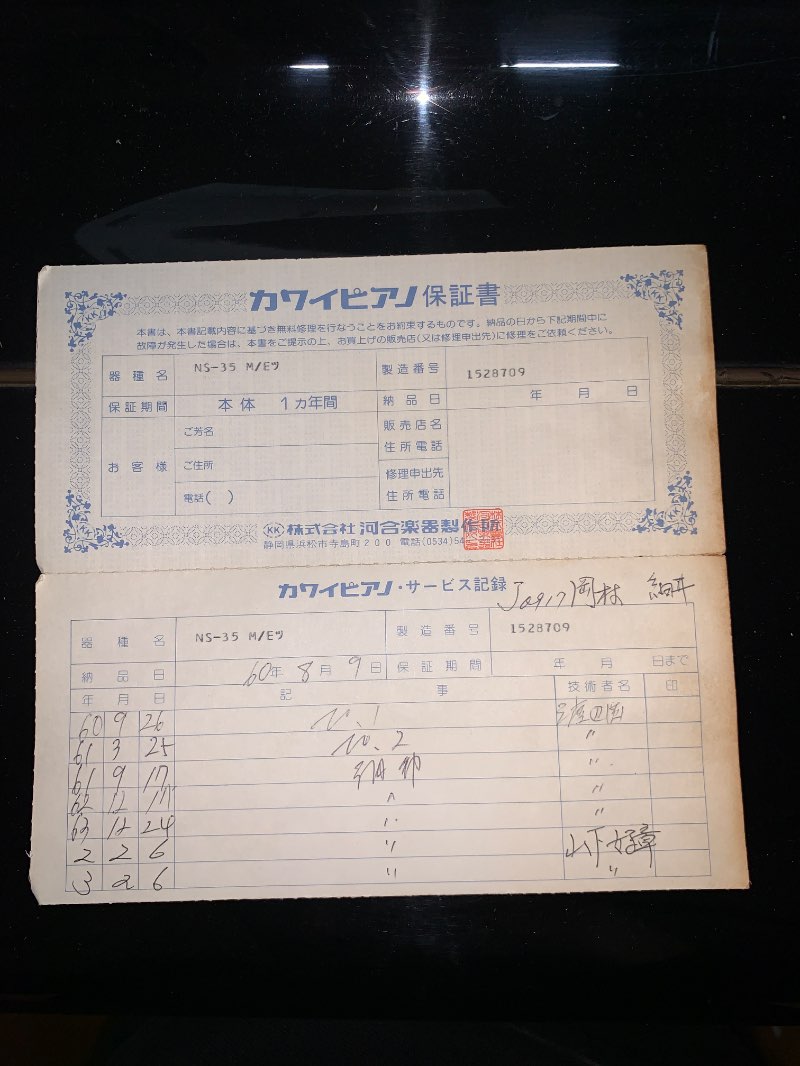 カワイピアノ保証書
本書は、本書記載内容に基づき無料修理を行なうことをお約束するものです。納品の日から下記期間中に
故障が発生した場合は、本書をご提示の上、お買上げの販売店(又は修理申出先)に修理をご依頼ください。
器種名 NS-35 M/Eツ 製造番号 1528709
保証期間 本体 1ヵ年間 納品日 年 月 日
お客様 ご芳名 販売店名
住所電話
ご住所
修理申出先
電話( ) 住所電話
KK 株式会社 河合楽器製作所
静岡県浜松市寺島町200 電話(0534)54
カワイピアノ・サービス記録 岡村 細井
器種名 NS-35 M/Eツ 製造番号 1528709
納品日 60年 8月 9日 保証期間 年 月 日まで
年 月 日 記事 技術者名 印
60 9 26 No.1
61 3 25 No.2 〃
61 9 17 〃
62 12 17 〃 〃
63 12 24 〃 〃
2 2 6 〃 山下
3 2 6 〃 〃